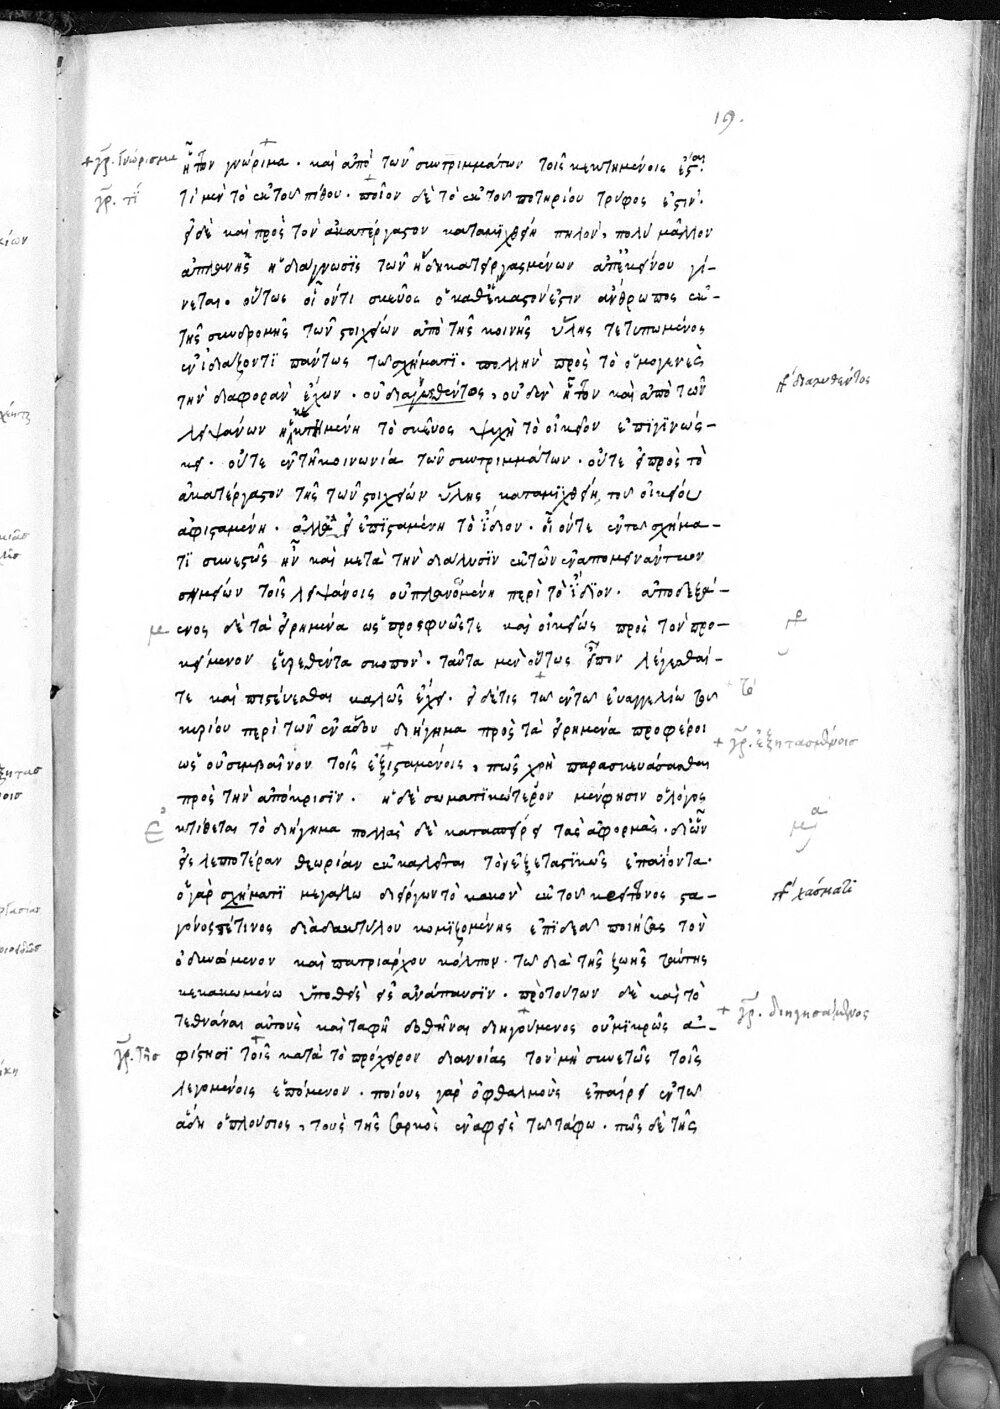 19.
+ γρ. γνώρισμα ἧττον γνώριμα. καὶ ἀπὸ τῶν συντριμμάτων τοῖς κεκτημένοις ἐστὶ
γρ. τί τί μεν τὸ ἐκ του πίθου. ποῖον δὲ τὸ ἐκ του ποτηρίου τρύφος ἐστιν.
εἰ δὲ καὶ πρὸς τὸν ἀκατέργαστον καταμιχθείη πηλον, πολὺ μᾶλλον
ἀπλανὴς ἡ διάγνωσις τῶν ἠδη κατειργασμένων ἀπ ἐκείνου γί-
νεται. οὕτως οἱονεί τι σκεῦος ὁ καθέκαστον ἐστιν ἄνθρωπος ἐκ
τῆς συνδρομῆς τῶν στοιχείων ἀπὸ τῆς κοινῆς ὕλης τετυπωμένος
ἐν ἰδιάζοντι πάντως τω σχήματι. πολλὴν πρὸς τὸ ὁμογενὲς
τὴν διαφορὰν ἔχων. οὗ διαλυθέντος, οὐδὲν ἧττον καὶ ἀπὸ τῶν
γρ. διαλυθέντος
λειψάνων ἡ κεκτημένη τὸ σκεῦος ψυχὴ τὸ οἰκεῖον ἐπιγινώς-
κει. οὔτε ἐν τῆ κοινωνία τῶν συντριμμάτων. οὔτε εἰ πρὸς τὸ
ἀκατέργαστον τῆς τῶν στοιχείων ὕλης καταμιχθείη, του οἰκείου
ἀφισταμένη. ἀλλ εἰ ἐπισταμένη τὸ ἴδιον. οἷον τε ἐν τω σχήμα-
τι συνεστὼς ἦν καὶ μετὰ τὴν διάλυσιν ἐκ τῶν ἐναπομεινάντων
σημείων τοῖς λειψάνοις οὐ πλανωμένη περὶ τὸ ἴδιον. ἀποδεξά-
μ ενος δὲ τὰ εἰρημένα ὡς προσφυῶς τε καὶ οἰκείως πρὸς τὸν προ-
κείμενον εὑρεθέντα σκοπὸν. ταῦτα μεν οὕτως εἶπον λέγεσθαί-
τε καὶ πιστεύεσθαι καλῶς ἔχει. εἰ δέ τις τω ἐν τω εὐαγγελίω του
+ τὸ
κυρίου περὶ τῶν ἐν ἅδου διήγημα πρὸς τὰ εἰρημένα προφέροι
+ γρ. ἐξητασμένοις
ὡς οὐ συμβαῖνον τοῖς ἐξισταμένοις, πῶς χρὴ παρασκευάσασθαι
πρὸς τὴν ἀπόκρισιν. ἡ δέ σωματικώτερον μέν φησιν ὁ λόγος
ἐ κτίθεται τὸ διήγημα πολλὰς δὲ κατασπείρει τας ἀφορμὰς. δι ὧν
εἰς λεπτοτέραν θεωρίαν ἐκκαλεῖται τὸν ἐξεταστικῶς ἐπαΐοντα.
ὁ γὰρ σχήματι μεγάλω διείργων τὸ κακὸν ἐκ του κρείττονος στα-
γρ. χάσματι
γόνος τινος διὰ δακτύλου κομιζομένης ἐπιδεᾶ ποιήσας τὸν
ὀδυνώμενον καὶ πατριάρχου κόλπον. τω διὰ τῆς ζωῆς ταύτης
κεκακωμένω ὑποθεὶς εἰς ἀνάπαυσιν. πρὸ τούτων δὲ καὶ τὸ
+ γρ. διηγησάμενος
τεθνάναι αὐτοὺς καὶ ταφῆ δοθῆναι διηγούμενος οὐ μικρῶς ἀ-
γρ. τῆς φίστησι τοῖς κατὰ τὸ πρόχειρον διανοίας τὸν μὴ συνετῶς τοῖς
λεγομένοις ἑπόμενον. ποίους γὰρ ὀφθαλμοὺς ἐπαίρει ἐν τω
ἅδη ὁ πλούσιος, τοὺς τῆς σαρκὸς ἐναφεὶς τω τάφω. πῶς δὲ τῆς